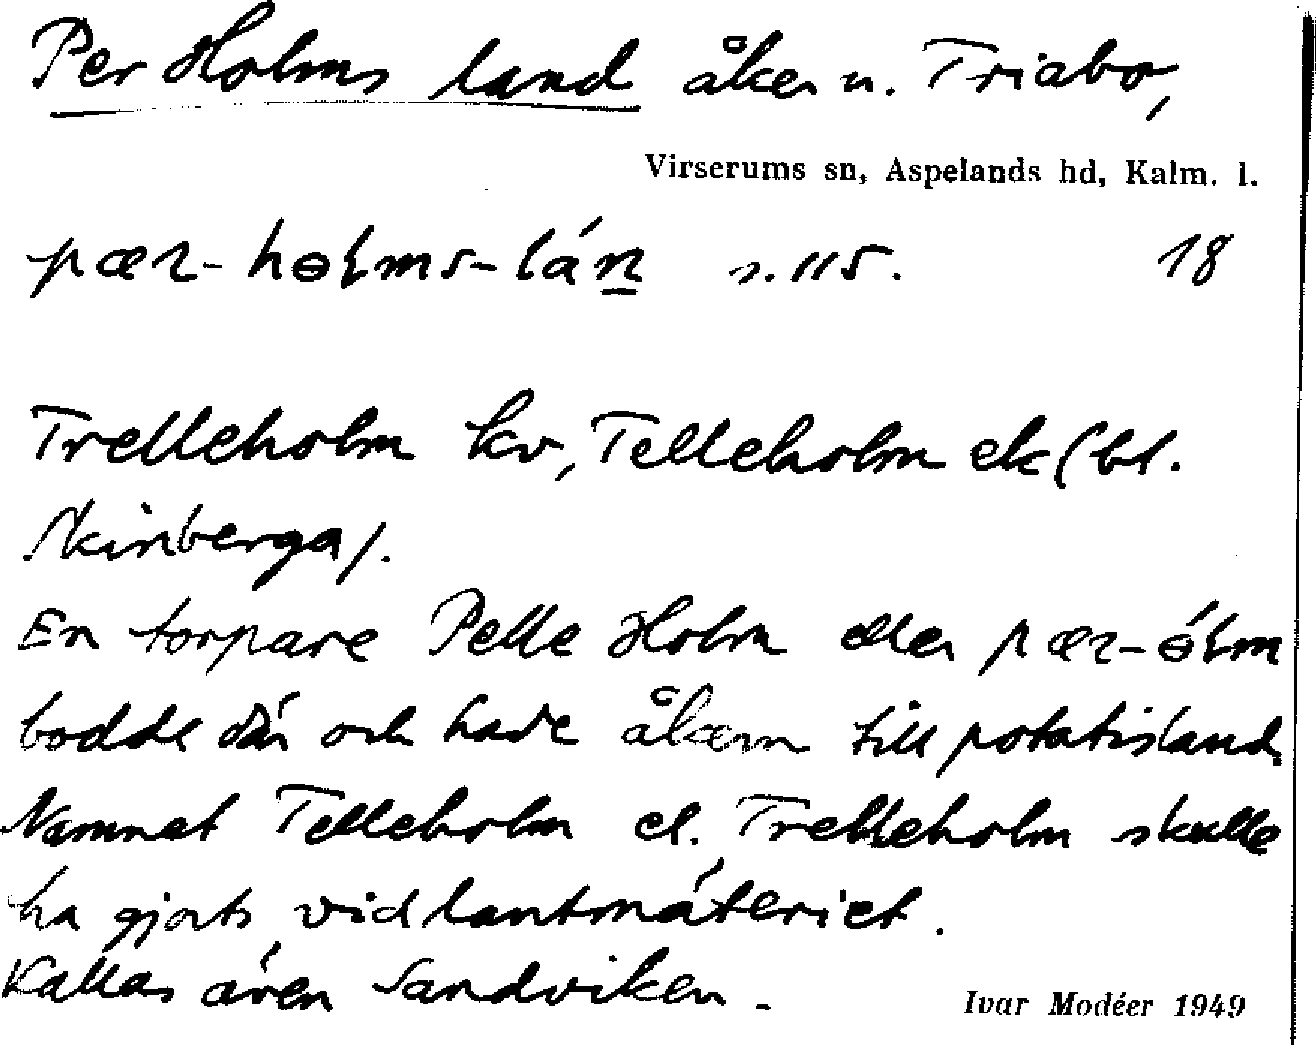 Per Holms land åker n. Triabo,
Virserums sn, Aspelands hd, Kalm. l.
pær-hɵlms-lán s. 115. 18
Trelleholm kv, Telleholm ek (bl.
Skinberga).
En torpare Pelle Holm eller pær-ɵ́lm
bodde där och hade åkern till potatisland.
Namnet Telleholm el. Trelleholm skulle
ha gjorts vid lantmäteriet.
Kallas även Sandviken.
Ivar Modéer 1949